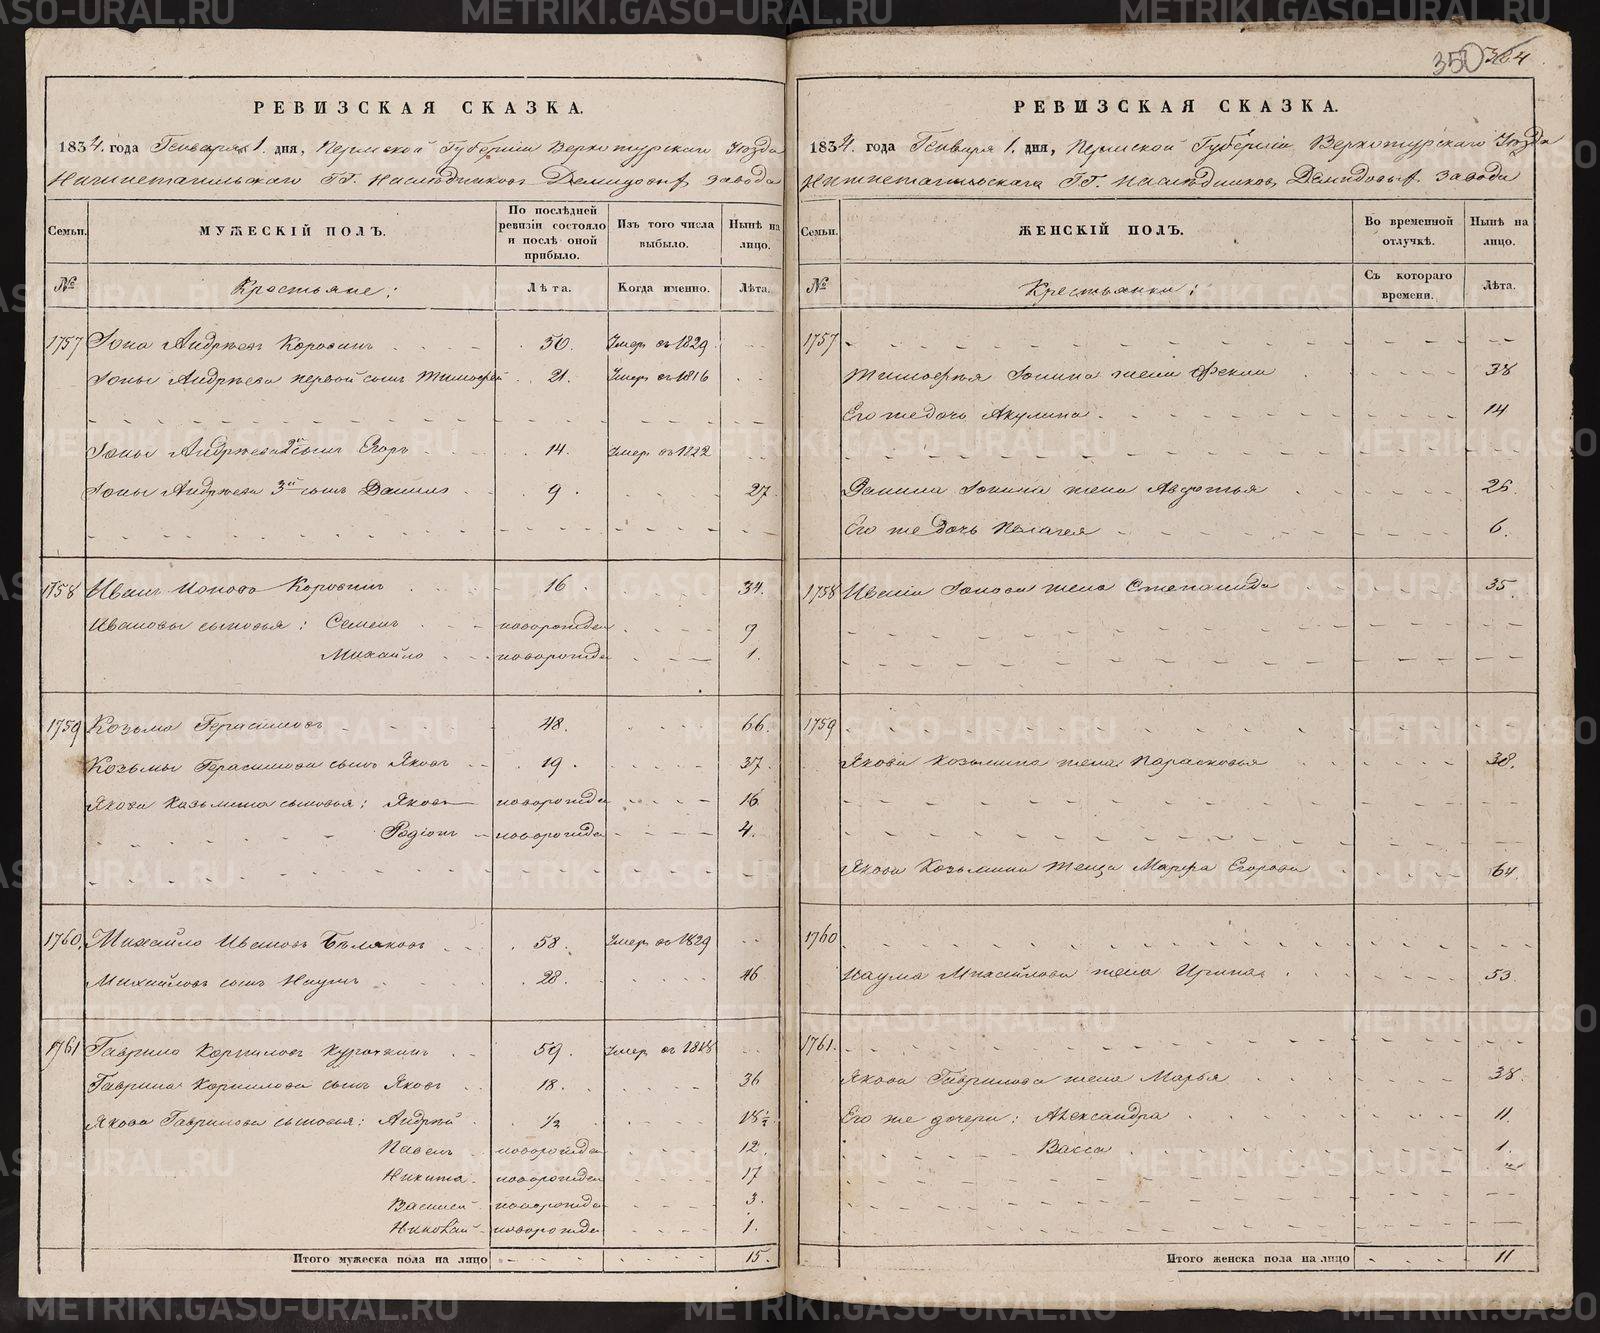 РЕВИЗСКАЯ СКАЗКА.
1834. года Генваря 1. дня, Пермской Губерніи Верхотурскаго Уѣзда
Нижнетагильскаго ГГ. Наслѣдниковъ Демидовыхъ завода
Семьи.
МУЖЕСКІЙ ПОЛЪ.
По послѣдней ревизіи состояло и послѣ оной прибыло.
Изъ того числа выбыло.
Нынѣ на лицо.
№
Крестьяне:
Лѣта.
Когда именно.
Лѣта.
1757 Іона Андреевъ Коровинъ 50. Умеръ въ 1829
Іоны Андреева первой сынъ Тимофей 21. Умеръ въ 1816
Іоны Андреева 2й сынъ Егоръ 14. Умеръ въ 1822
Іоны Андреева 3й сынъ Данило 9. 27.
1758 Иванъ Іоновъ Коровинъ 16 34.
Ивановы сыновья: Семенъ новорожден 9
Михайло новорожден 1.
1759 Козьма Герасимовъ 48. 66.
Козьмы Герасимова сынъ Яковъ 19. 37
Якова Козьмина сыновья: Яковъ новорожден 16
Родіонъ новорожден 4.
1760. Михайло Ивановъ Бѣляковъ 58. Умеръ въ 1829
Михайловъ сынъ Наумъ 28. 46
1761 Гаврило Корниловъ Курочкинъ 59. Умеръ въ 1818
Гаврила Корнилова сынъ Яковъ 18. 36
Якова Гаврилова сыновья: Андрей ½ 18½
Павелъ новорожден 12.
Никита новорожден 17
Василей новорожден 3.
Николай новорожден 1.
Итого мужеска пола на лицо 15.
350 364
РЕВИЗСКАЯ СКАЗКА.
1834. года Генваря 1. дня, Пермской Губерніи Верхотурскаго Уѣзда
Нижнетагильскаго ГГ. Наслѣдниковъ Демидовыхъ завода
Семьи.
ЖЕНСКІЙ ПОЛЪ.
Во временной отлучкѣ.
Нынѣ на лицо.
№
Крестьянки:
Съ котораго времени.
Лѣта.
1757
Тимофея Іонина жена Фекла 38
Его же дочь Акулина 14
Данила Іонина жена Авдотья 26.
Его же дочь Пелагея 6.
1758 Ивана Іонова жена Степанида 35.
1759
Якова Козьмина жена Парасковья 38.
Якова Козьмина теща Марфа Егорова 64.
1760
Наума Михайлова жена Ирина 53
1761.
Якова Гаврилова жена Марья 38.
Его же дочери: Александра 11.
Васса 1.
Итого женска пола на лицо 11
METRIKI.GASO-URAL.RU